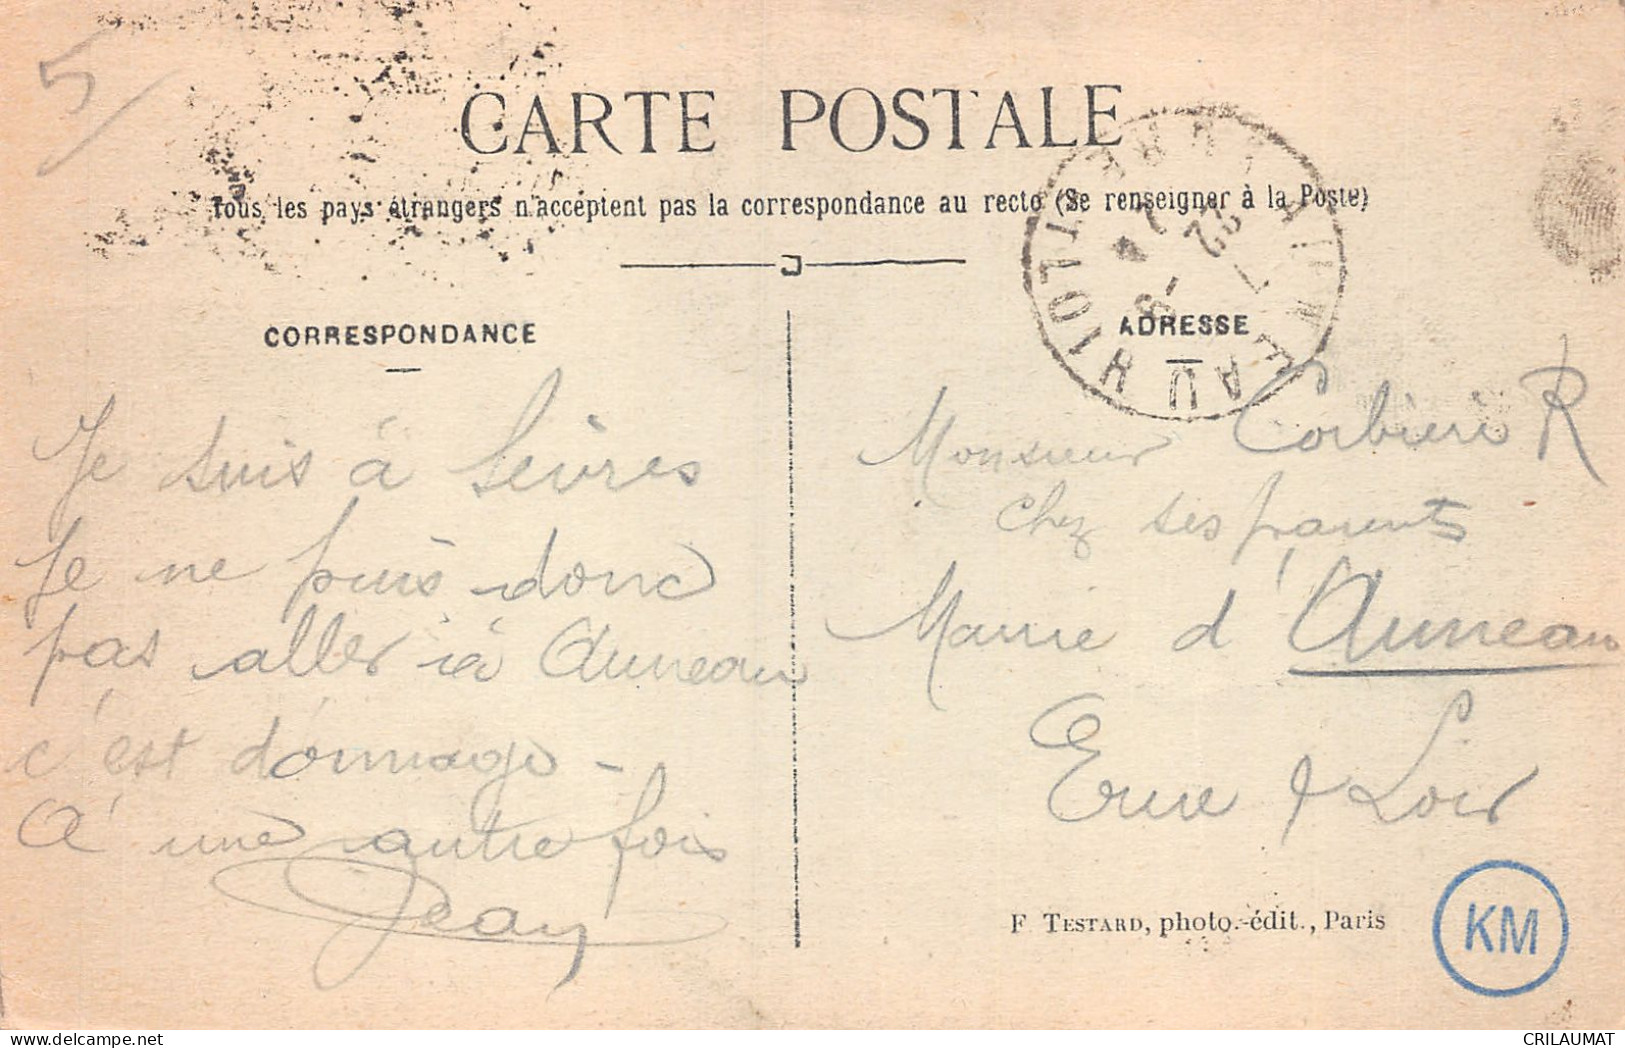 5
CARTE POSTALE
Tous les pays étrangers n'acceptent pas la correspondance au recto (Se renseigner à la Poste)
CORRESPONDANCE
Je suis à Sèvres
Je ne puis donc
pas aller à Auneau
c'est dommage -
A une autre fois
Jean
ADRESSE
22
Monsieur Corbière R
chez ses parents
Mairie d'Auneau
Eure & Loir
F. TESTARD, photo.-édit., Paris
KM
CRILAUMAT